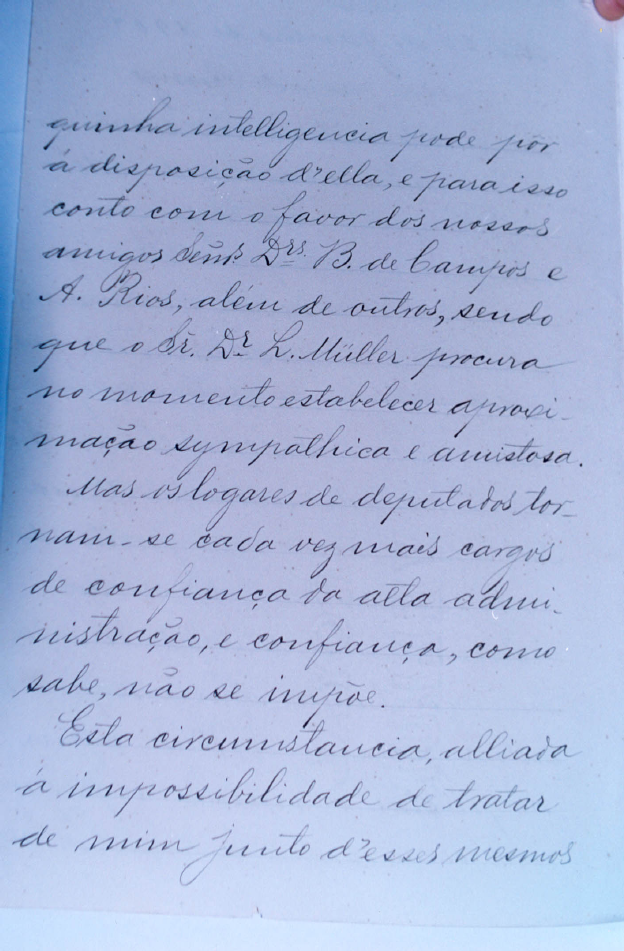 quinha intelligencia pode pôr
á disposição d'ella, e para isso
conto com o favor dos nossos
amigos Señrs Drs. B. de Campos e
A. Rios, além de outros, sendo
que o Sr. Dr. L. Müller procura
no momento estabelecer aproxi-
mação sympathica e amistosa.
Mas os logares de deputados tor-
nam-se cada vez mais cargos
de confiança da alta admi-
nistração, e confiança, como
sabe, não se impõe.
Esta circumstancia, alliada
á impossibilidade de tratar
de mim junto d'esses mesmos